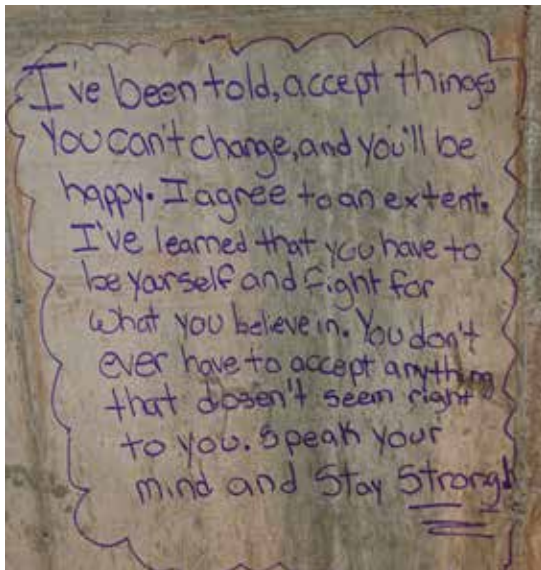 I've been told, accept things
You can't change, and you'll be
happy. I agree to an extent.
I've learned that you have to
be yourself and fight for
what you believe in. You don't
ever have to accept anything
that dosen't seem right
to you. Speak your
mind and Stay Strong!